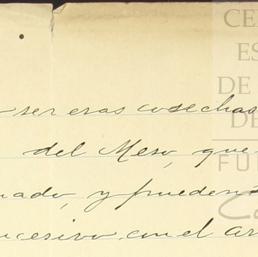 ser esas cosechas
del Meso, que
nado, y pueden
ucesivo, con el ar
CE
ES
DE
DE
FU